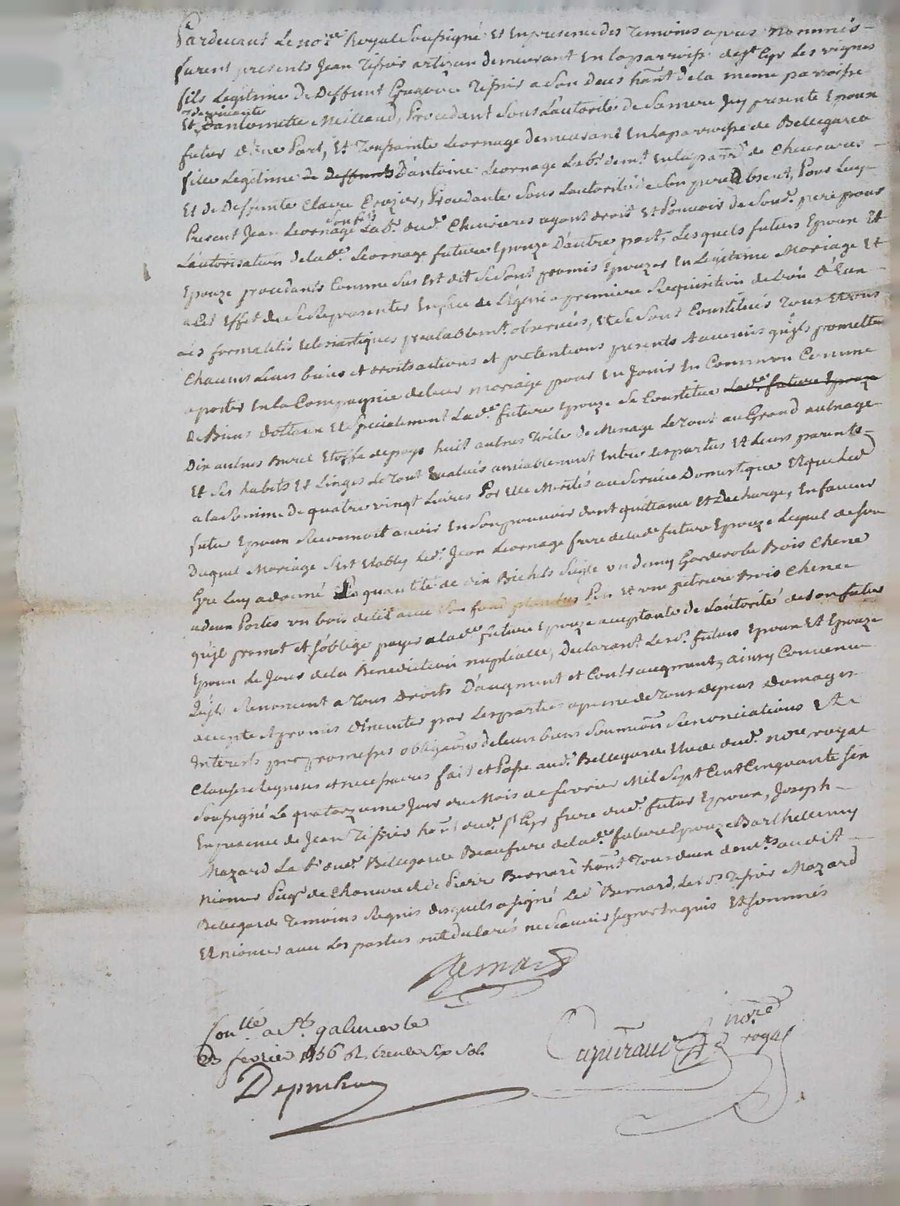 Pardevant Le no.re Royal Soussigné Et En presence des Temoins apres Nommés
furent presents Jean Tissier artizan demeurant En la parroisse de St Cyr Les vignes
fils Legitime de Deffunt Tissier a Son Deces hant de la meme parroisse
Et D'antoinette Meilland, Procedant Sous Lautorité de Samere Icy presente Epoux
futur D'une Part, Et Toussainte Leornage Demeurant En la parroisse de Bellegarde
fille Legitime de deffunts D'antoine Leornage Lab.r dem.t En la parr.e de Chevrieres
Et de Deffunte Claire Crozier, Procedante Sous Lautorité de Son pere absent, Sous Lexp.
Present Jean Leornage Lab.r dud. Chevrieres ayant droit Et Pouvoir de Sond. pere pour
L'autorisation de lad.e Leornage future Epouze D'autre part, Lesquels futurs Epoux Et
Epouze procedants Comme Sus Est dit Se Sont promis Epouzer En Legitime Mariage Et
a Cet Effet de Se Representer En face de L'eglise a premiere Requisition de L'un D'Eux
Les formalités Eclesiastiques prealablem.t observées, Et Se Sont Constitués Tous Et uns
Chacuns Leurs biens et droits actions et pretentions presents Et avenirs qu'ils promettent
aporter En la Compagnie de leur mariage pour En Jouir En Commun Comme
De Biens dottaux Et Specialement Lad.e future Epouze Se Constitue Lad.e future Epouze
Dix aunes Burel Etoffe de pays huit aunes Toile de Menage Le Tout au Grand aunage
Et Ses habits Et Linges Le Tout Evalués amiablement Entre Les parties Et Leurs parents
a la Somme de quatre vingt Livres Par Elle Merités au Service Domestique Et que Led.
futur Epoux Reconnoit avoir En Son pouvoir dont quittance Et Decharge, En faveur
Duquel Mariage S'est Etably Led. Jean Leornage frere de lad.e future Epouze Lequel de Son
Gré Luy a donné La quantité de dix Bichets Seigle un demy Garderobe Bois Chene
a deux Portes un bois de lit avec Son fond Et une petriere Bois Chene
qu'il promet et S'oblige payer a lad.e future Epouze acceptante de L'autorité de Son futur
Epoux Le Jour de la Benediction nuptialle, Declarant Led.s futurs Epoux Et Epouze
qu'ils Renoncent a Tous Droits D'augment et Contraugment, ainsy Convenu
accepté Et promis D'executer par Les parties a peine de Tous depens Domages
Interets par promesses obligaõns de leurs biens Soumiõns Renonciations Et
Clauses Requises et necessaires fait et Passé aud. Bellegarde Etude dud. no.re royal
Soussigné Le quatorzieme Jour du Mois de fevrier Mil Sept Cent Cinquante Six
En presence de Jean Tissier hant dud. St Cyr frere dud. futur Epoux, Joseph
Mazard La.b dud. Bellegarde Beaufrere de lad.e future Epouze Barthellemy
Nionor de Chanvre Et de Pierre Bernard hant Tous deux dem.ts audit
Bellegarde Temoins Requis Desquels a signé Led. Bernard, Led.s Tissier Mazard
Et Nionor avec Les parties ont declarés ne Scavoir signer Enquis Et Sommés
Bernard
Con.llé a St galmier le
23 fevrier 1756 R. trente Six Sols
no.re
royal